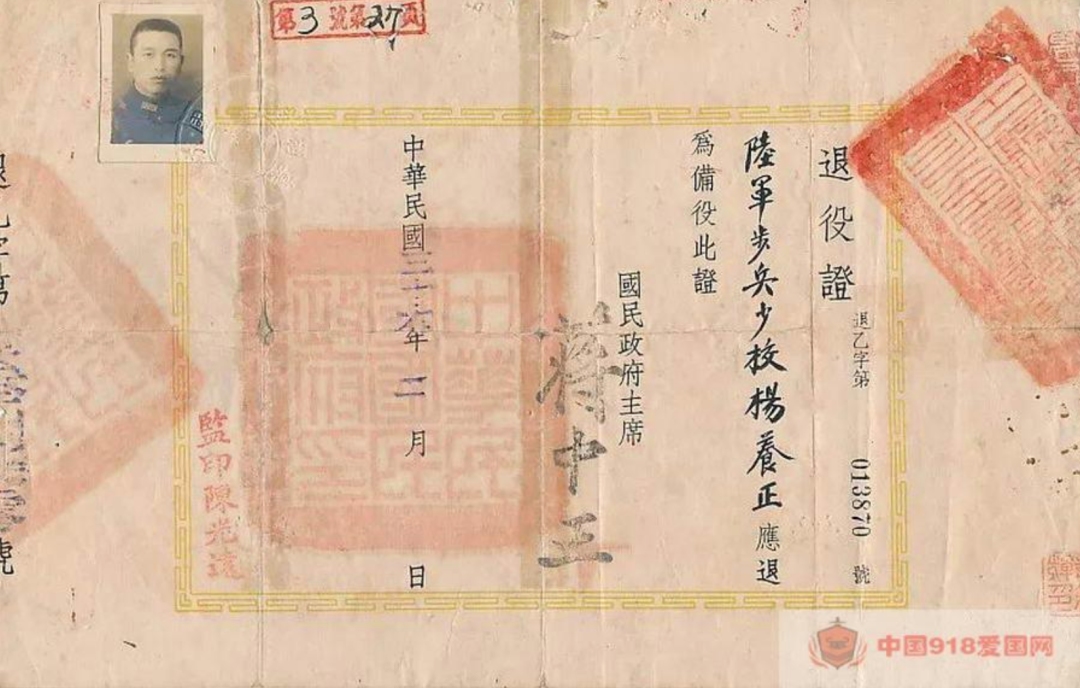 第3號第27頁
退役證
退乙字第 013870 號
陸軍步兵少校楊養正應退
爲備役此證
國民政府主席
蔣中正
中華民國三十六年二月 日
監印陳光遠
退乙字第 號
中国918爱国网